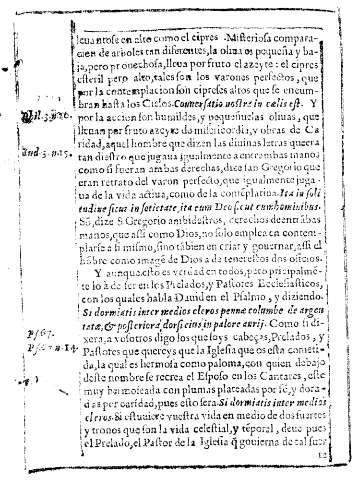 leuantose en alto como el cipres. Misteriosa compara-
cion de arboles tan diferentes, la oliua es pequeña y ba-
ja, pero prouechosa, lleua por fruto el azeyte: el cipres
esteril pero alto, tales son los varones perfectos, que
por la contemplacion son cipreses altos que se encum-
bran hasta los Cielos. Conuersatio nostra in cælis est. Y
por la accion son humildes, y pequeñuelas oliuas, que
lleuan por fruto azeyte de misericordia, y obras de Ca
ridad, aquel hombre que dizen las diuinas letras que era
tan diestro que jugaua igualmente a entrambas manos
como si fueran ambas derechas, dize san Gregorio que
eran retrato del varon perfecto, que igualmente juga-
ua de la vida actiua, como de la contēplatiua. Ita in soli
tudine sicut in societate, ita cum Deo sicut cum hominibus.
Sō, dize S. Gregorio ambidestros, derechos de entrābas
manos, que assi como Dios, no solo emplea en contem-
plarse a si mismo, sino tābien en criar y gouernar, assi el
hōbre como imagē de Dios a de tener estos dos oficios.
Y aunque esto es verdad en todos, pero principalmē-
te lo à de ser en los Prelados, y Pastores Ecclesiasticos,
con los quales habla Dauid en el Psalmo, y diziendo.
Si dormiatis inter medios cleros pennæ columbæ de argen
tatæ, & posteriora dorsi eius in palore auri. Como si di-
xera, a vosotros digo los que soys cabeças, Prelados, y
Pastores que quereys que la Iglesia que os esta cometi-
da, la qual es hermosa como paloma, con quien debajo
deste nombre se recrea el Esposo en los Cantares, este
muy hermoseada con plumas plateadas por fè, y dora-
das por caridad, pues esto sera. Si dormiatis inter medios
cleros. Si estuuiere vuestra vida en medio de dos suertes
y tronos que son la vida celestial, y tēporal, deue pues
el Prelado, el Pastor de la Iglesia q̄ gouierna de tal suer
Iud. 3. n. 15.
Ps. 67.
Ps. 67. n. 14.